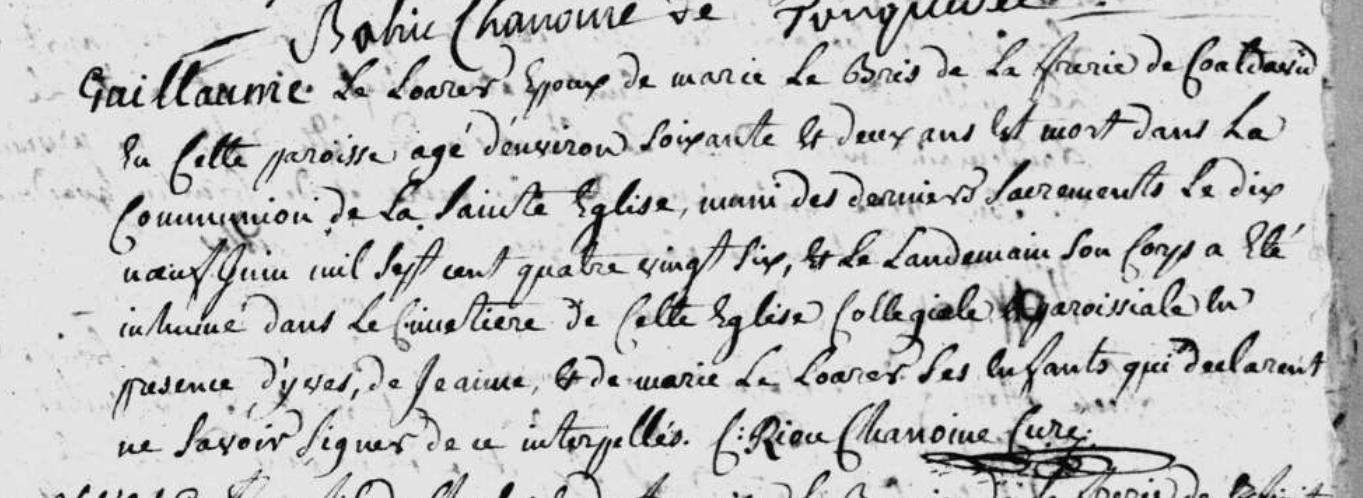 Babic Chanoine de
Guillaume Le Loarer Epoux de marie Le Bris de La frerie de Coatdavid
En Cette paroisse agé d'environ soixante Et deux ans Est mort dans La
Communion de La Sainte Eglise, muni des derniers Sacrements Le dix
nœuf Juin mil Sept cent quatre vingt Six, Et Le Landemain Son Corps a Eté
inhumé dans Le Cimetiere de Cette Eglise Collegiale Et paroissiale En
presence d'yves, de Jeanne, Et de marie Le Loarer Ses Enfants qui declarent
ne Savoir Signer de ce interpellés. C: Riou Chanoine Curé.